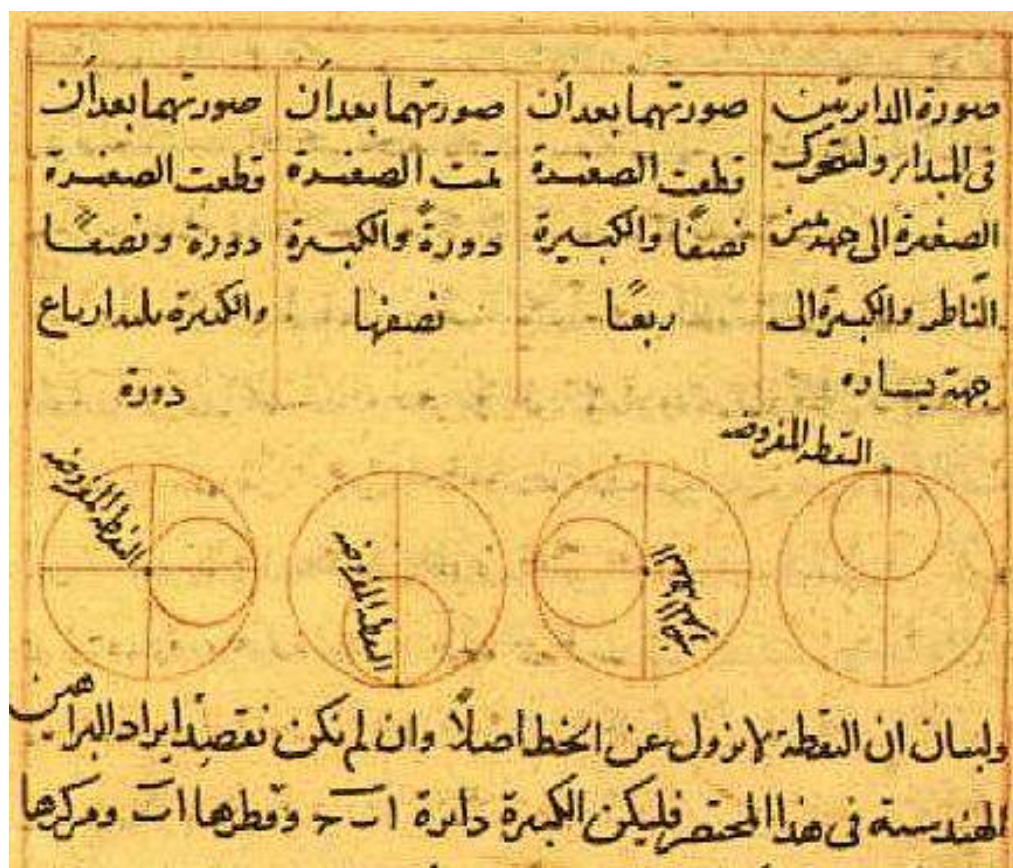 صورة الدائرتين
في المبدا ولتتحرك
الصغيرة الى جهة يمين
الناظر والكبيرة الى
جهة يساره
صورتهما بعد أن
قطعت الصغيرة
نصفًا والكبيرة
ربعًا
صورتهما بعد أن
تمت الصغيرة
دورةً والكبيرة
نصفها
صورتهما بعد أن
قطعت الصغيرة
دورة ونصفًا
والكبيرة ثلثة ارباع
دورة
النقطة المفروضة
النقطة المفروضة
النقطة المفروضة
النقطة المفروضة
ولبيان ان النقطة لا تزول عن الخط أصلًا وان لم نكن نقصد ايراد البراهين
الهندسية في هذا المختصر فليكن الكبيرة دائرة اب ج وقطرها اب ومركزها